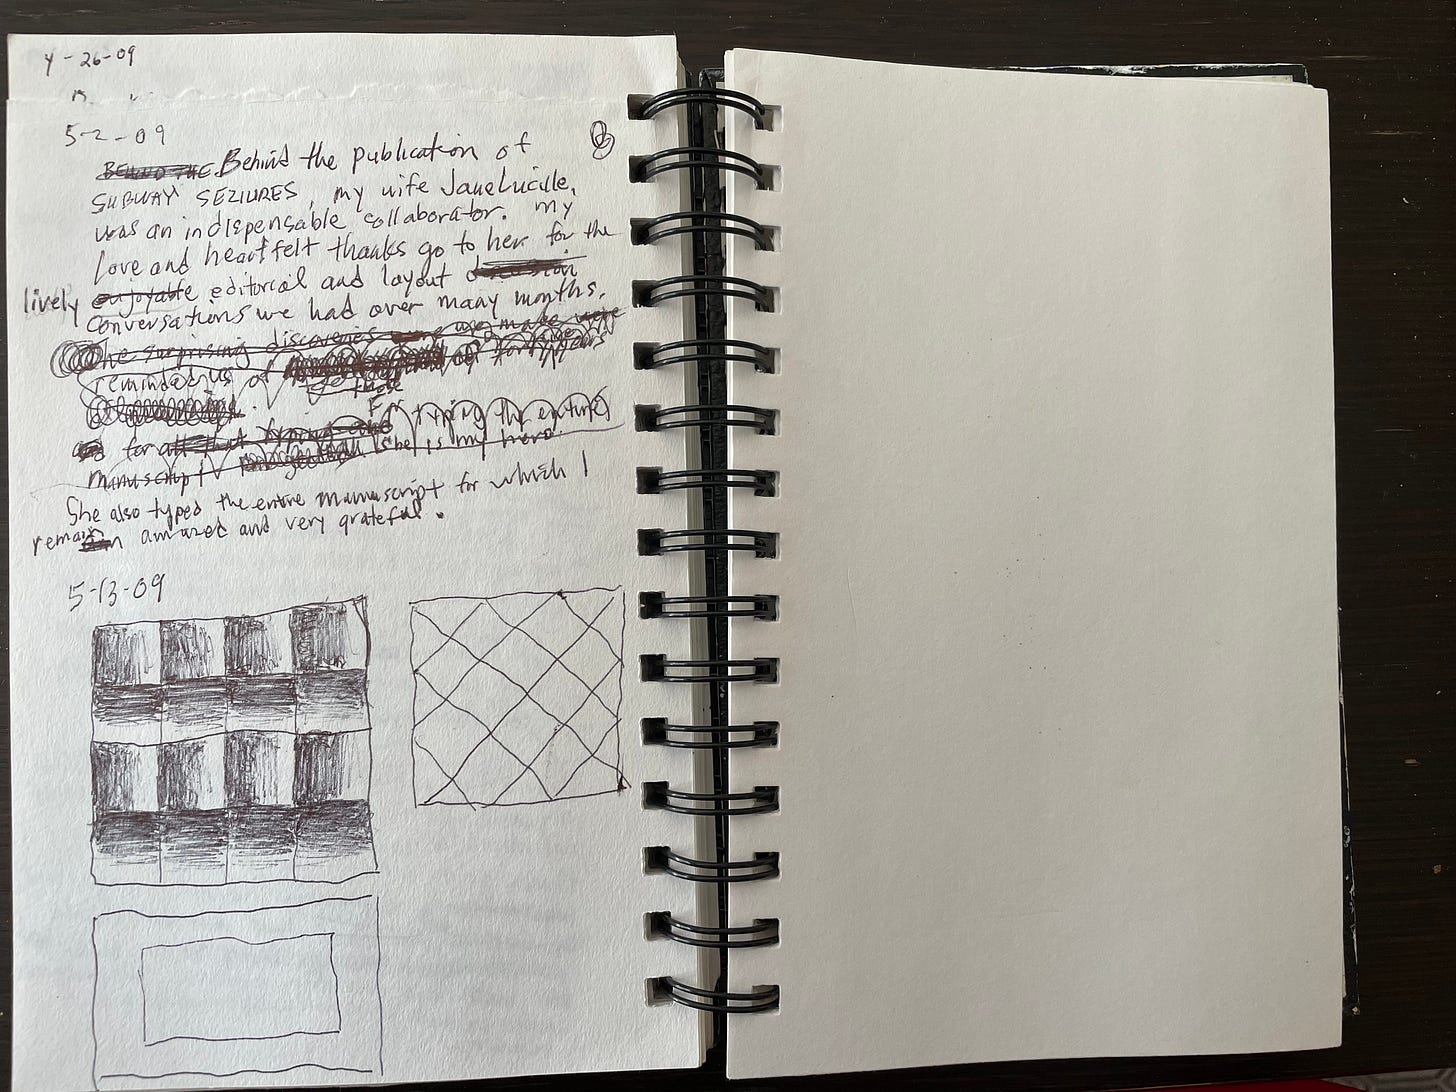 4-26-09
5-2-09
BEHIND THE Behind the publication of
SUBWAY SEZIURES, my wife Jane Lucille,
was an indispensable collaborator. My
love and heartfelt thanks go to her for the
lively enjoyable editorial and layout discussion
conversations we had over many months.
The surprising discoveries we made were
reminders of
those
for all that typing and typing the entire
manuscript she is my hero.
She also typed the entire manuscript for which I
remain amazed and very grateful.
5-13-09